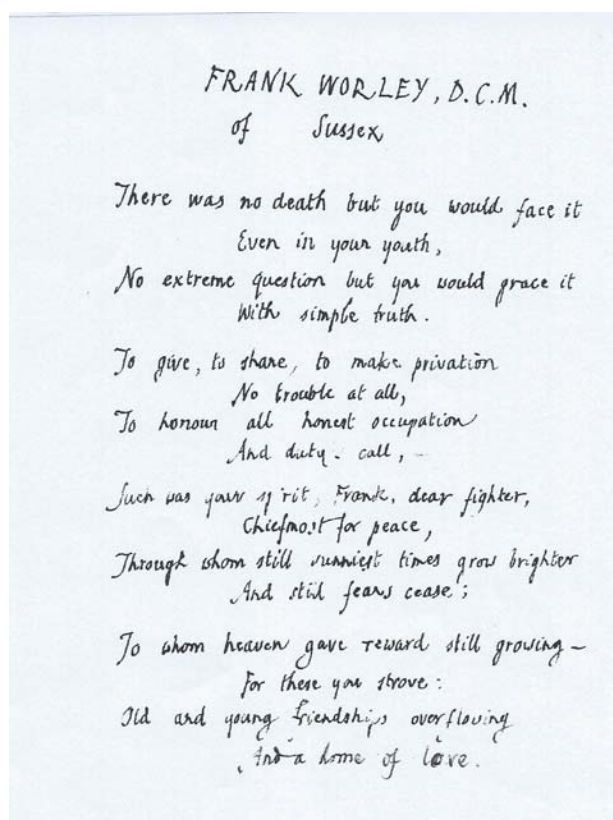 FRANK WORLEY, D.C.M.
of Sussex
There was no death but you would face it
Even in your youth,
No extreme question but you would grace it
With simple truth.
To give, to share, to make privation
No trouble at all,
To honour all honest occupation
And duty - call, -
Such was your spirit, Frank, dear fighter,
Chiefmost for peace,
Through whom still sunniest times grow brighter
And still fears cease;
To whom heaven gave reward still growing -
For these you strove:
Old and young friendships overflowing
And a home of love.